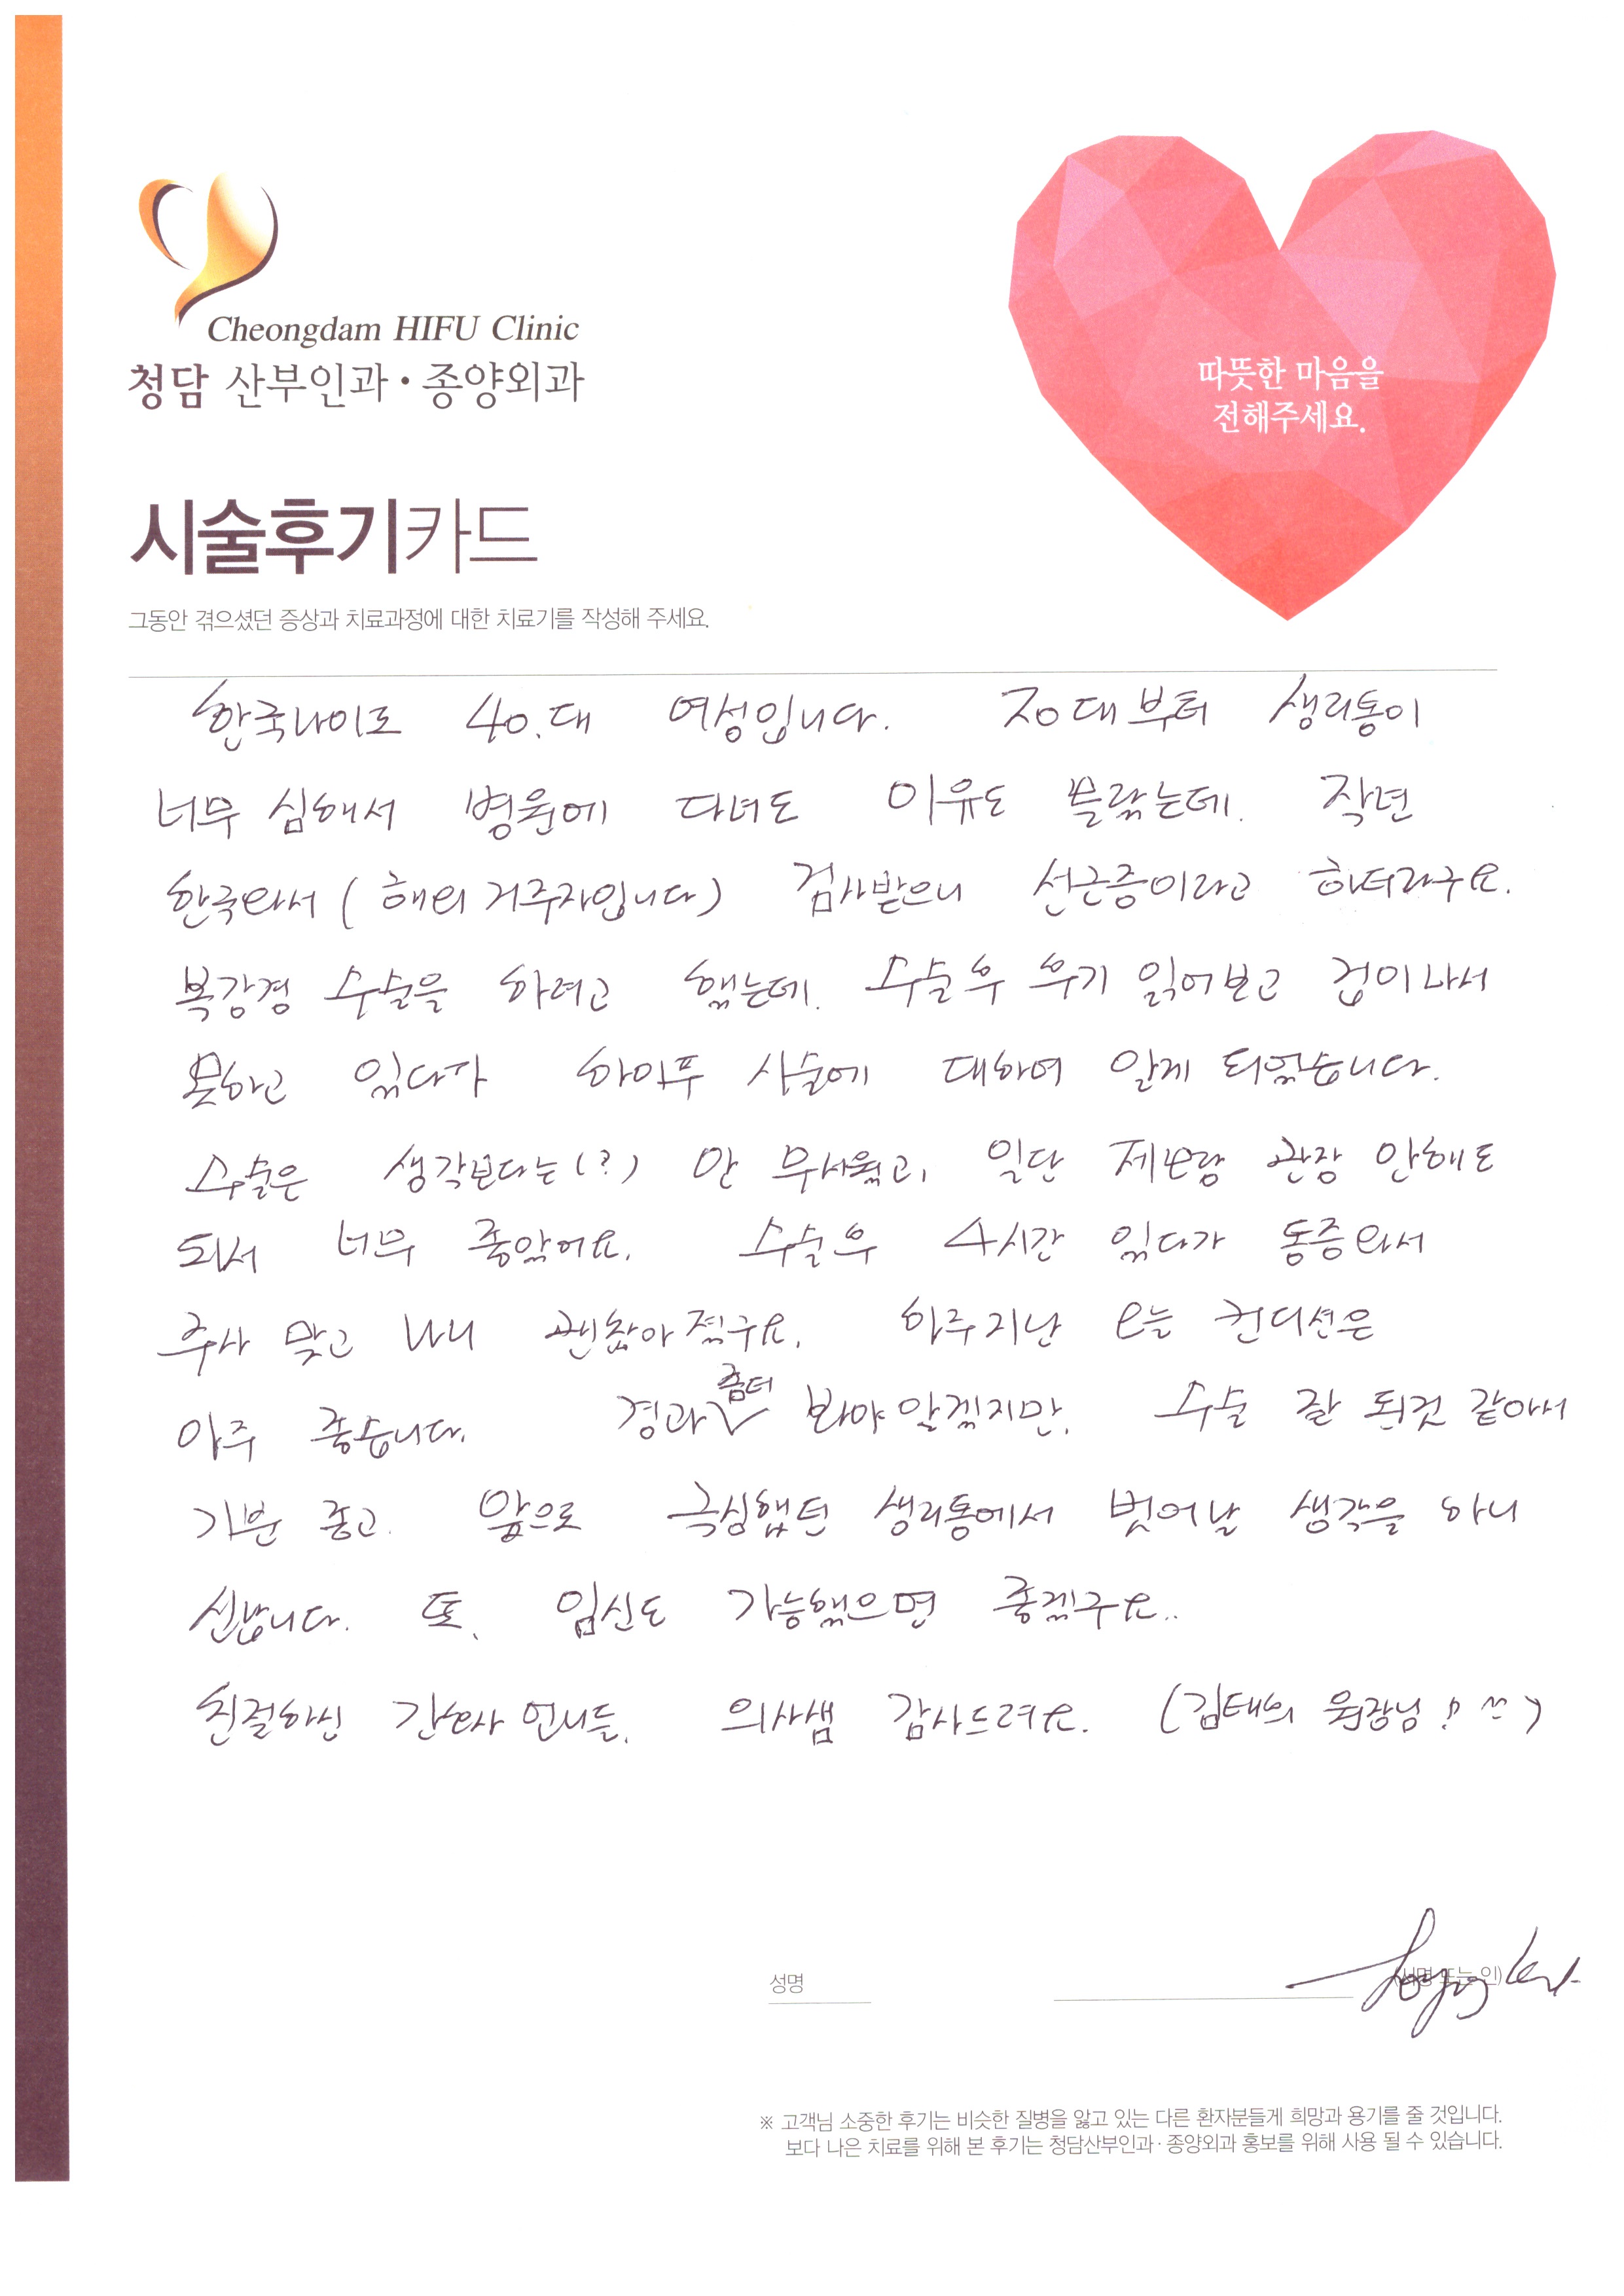 Cheongdam HIFU Clinic
청담 산부인과·종양외과
따뜻한 마음을
전해주세요.
시술후기카드
그동안 겪으셨던 증상과 치료과정에 대한 치료기를 작성해 주세요.
한국나이로 40.대 여성입니다. 30대부터 생리통이
너무 심해서 병원에 다녀도 이유도 몰랐는데. 작년
한국와서 (해외 거주자입니다) 검사받으니 선근증이라고 하더라구요.
복강경 수술을 하려고 했는데. 수술후 후기 읽어보고 겁이나서
못하고 있다가 하이푸 시술에 대하여 알게 되었습니다.
수술은 생각보다는(?) 안 무서웠고, 일단 제모랑 관장 안해도
되서 너무 좋았어요. 수술후 4시간 있다가 통증와서
주사 맞고 나니 괜찮아졌구요. 하루지난 오늘 컨디션은
아주 좋습니다. 경과 좀더 봐야알겠지만, 수술 잘 된것 같아서
기분 좋고. 앞으로 극심했던 생리통에서 벗어날 생각을 하니
신납니다. 또, 임신도 가능했으면 좋겠구요..
친절하신 간호사 언니들, 의사샘 감사드려요. (김태희 원장님! ^^)
성명
(서명 또는 인)
※ 고객님 소중한 후기는 비슷한 질병을 앓고 있는 다른 환자분들게 희망과 용기를 줄 것입니다.
보다 나은 치료를 위해 본 후기는 청담산부인과·종양외과 홍보를 위해 사용 될 수 있습니다.